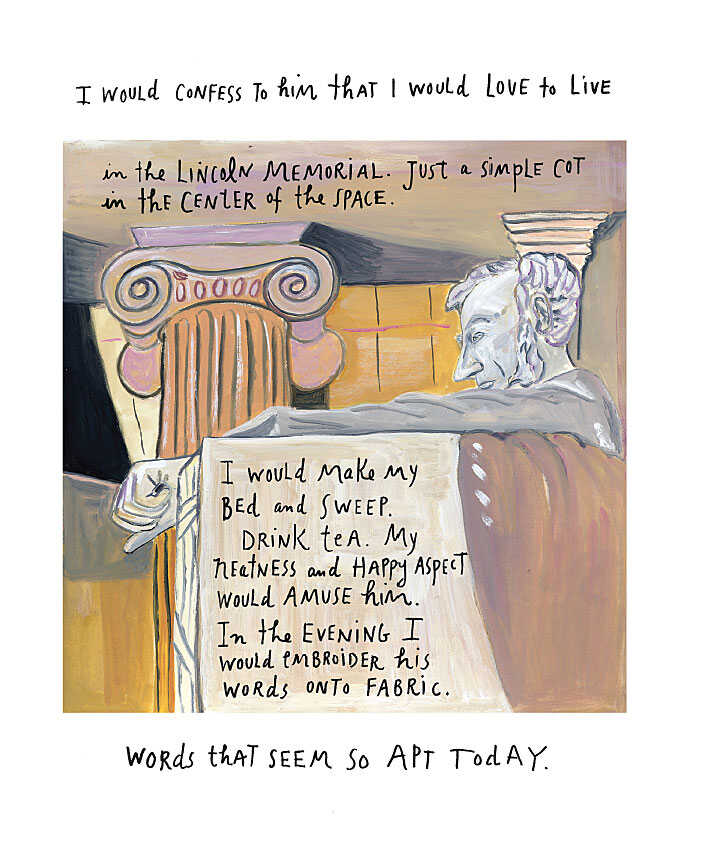 I WOULD CONFESS TO him that I WOULD LOVE to LivE
in the LINCOLN MEMORIAL. JUST a SIMPLE COT
in thE CENTER of the SPACE.
I WOULD MAKE MY
BEd and SWEEP.
DRINK tEA. My
NEATNESS and HAPPY ASPECT
WOULD AMUSE him.
In the EVENING I
WOULD EMBROIDER his
WORds ONTO FABRIC.
WORds thAT SEEM So APT TodAY.